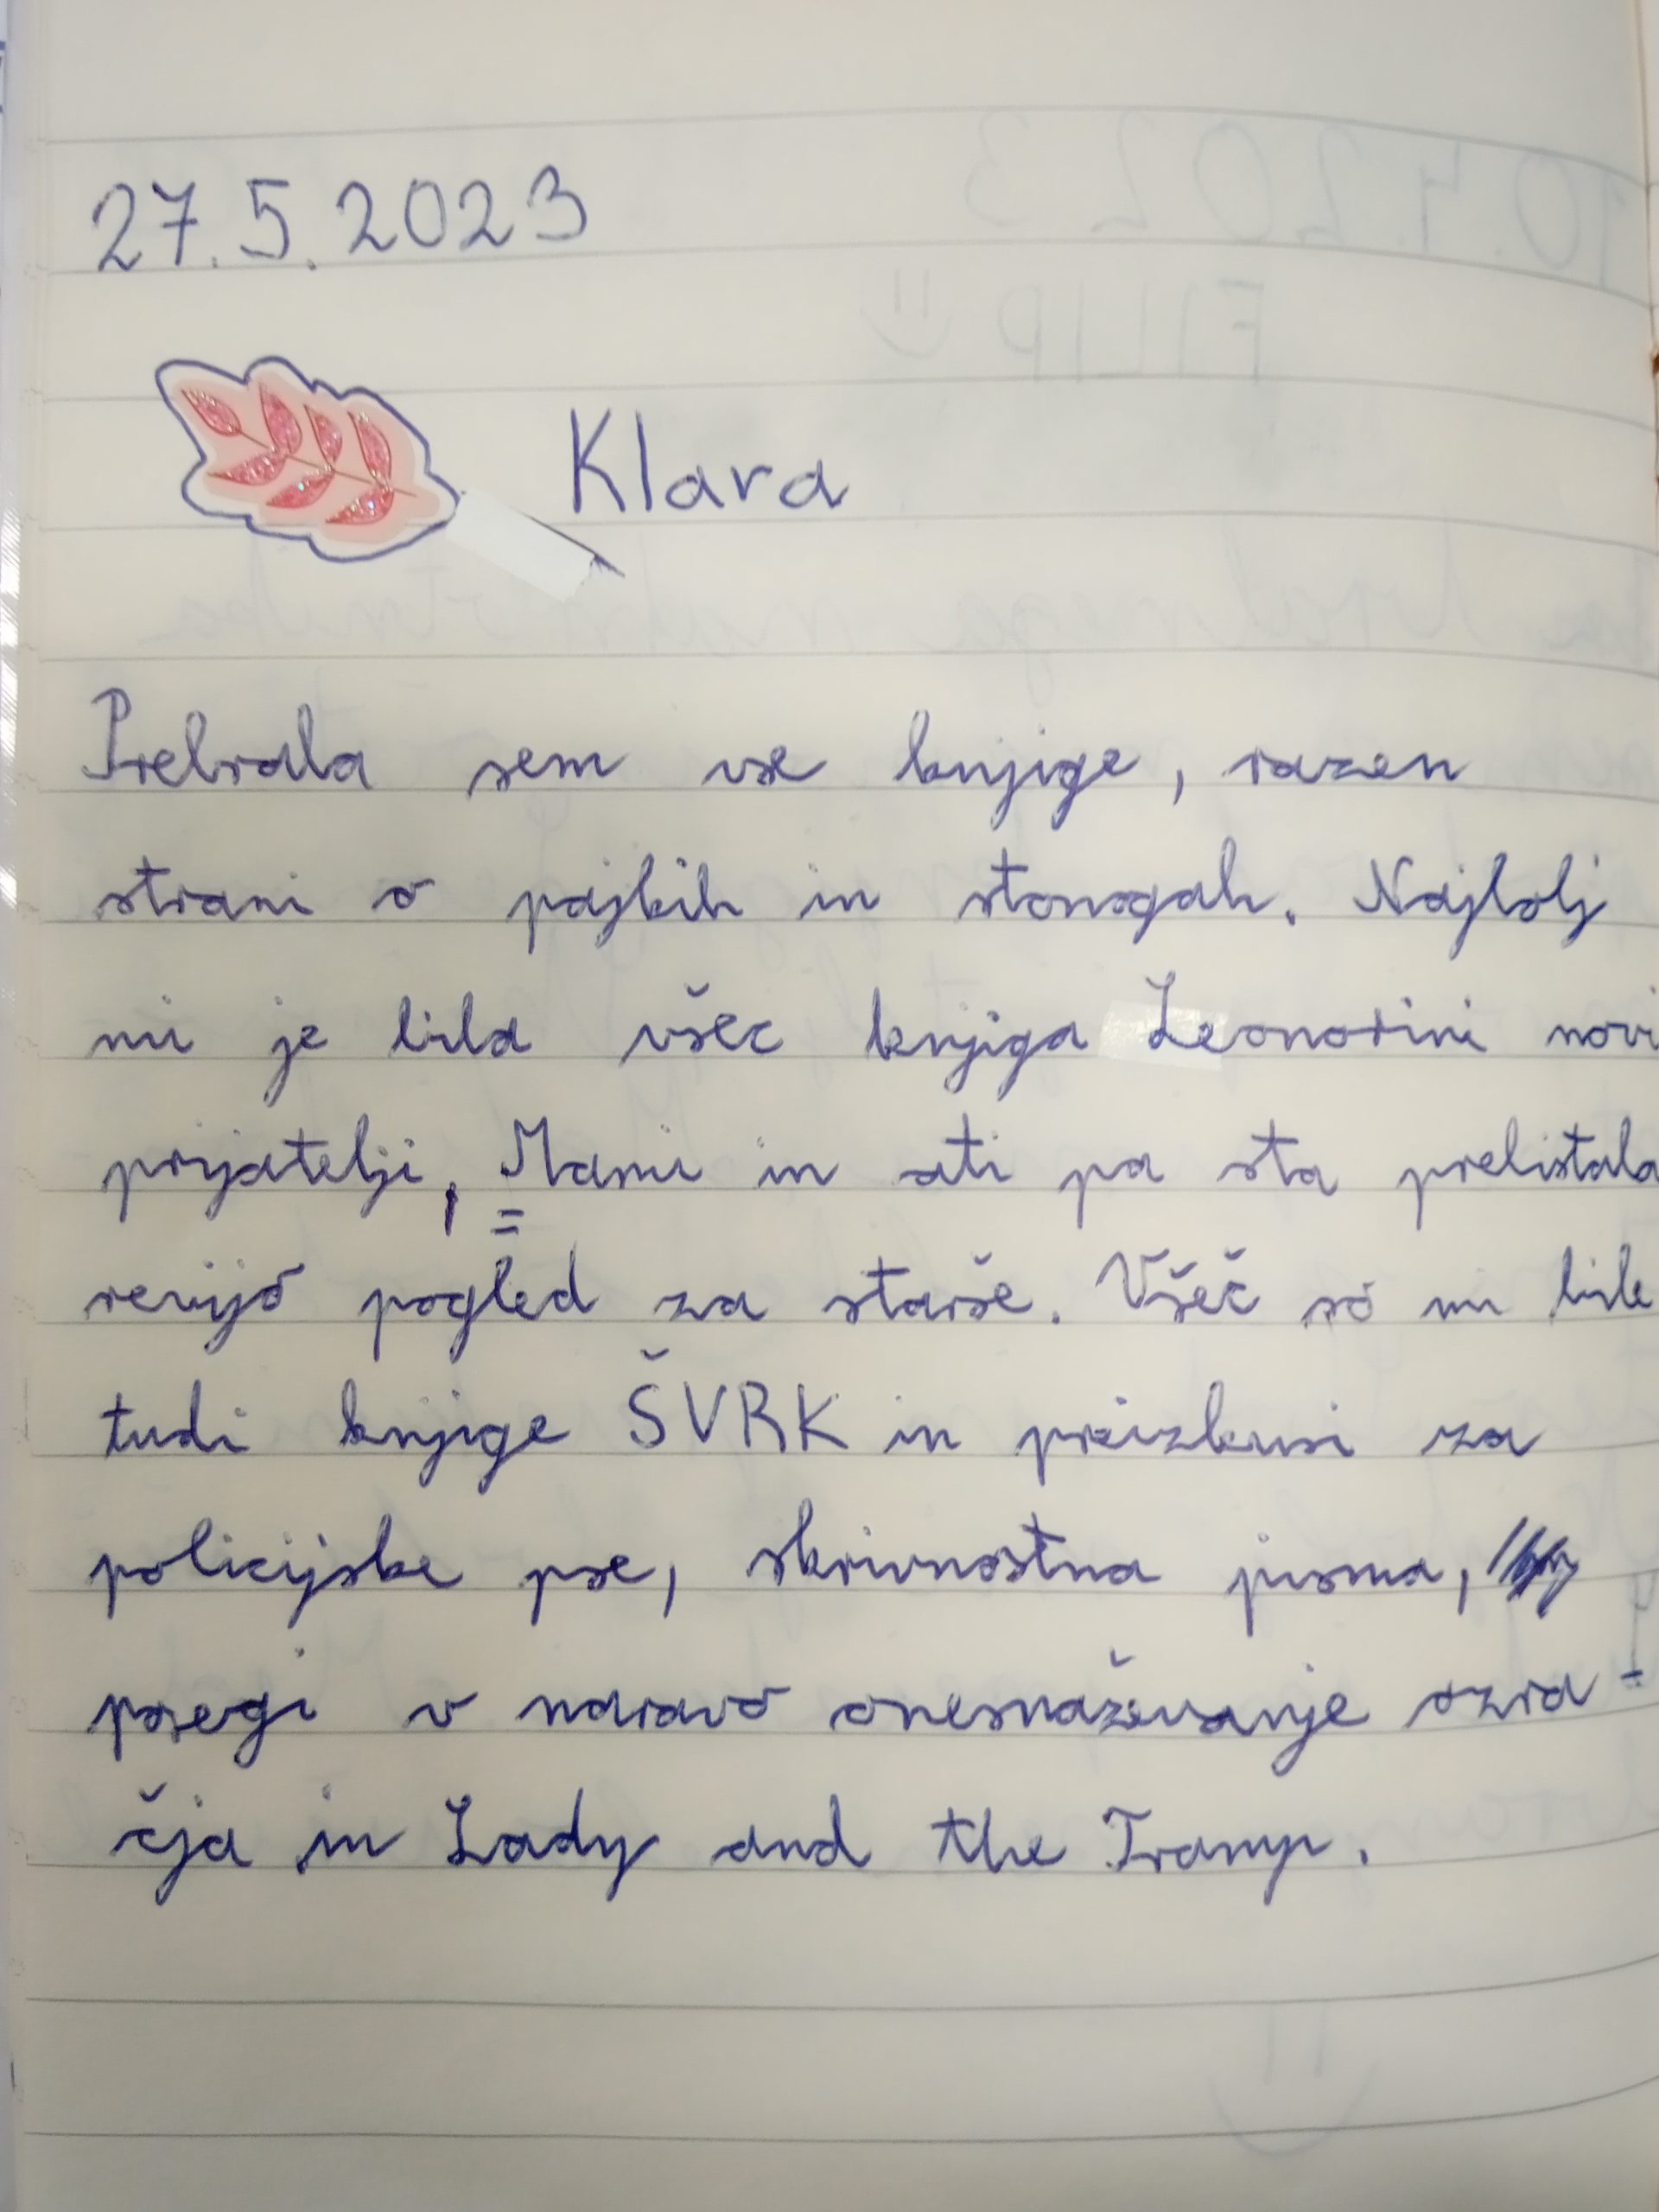 27.5.2023
Klara
Prebrala sem vse knjige, razen
strani o pajkih in stonogah. Najbolj
mi je bila všec knjiga Leonorini novi
prijatelji, Mami in ati pa sta prelistala
revijo pogled za starše. Všeč so mi bile
tudi knjige ŠVRK in preizkusi za
policijske pse, skrivnostna pisma,
posegi v naravo onesnaževanje ozra-
čja in Lady and the Tramp.